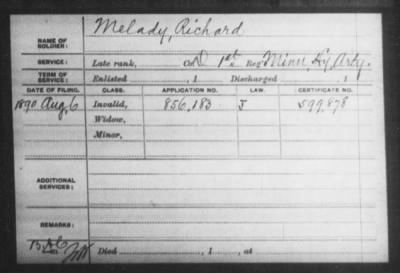 NAME OF SOLDIER: Melady, Richard
SERVICE: Late rank, Co. D 1st Reg't Minn. Hy. Arty.
TERM OF SERVICE: Enlisted , 1 Discharged , 1
DATE OF FILING. CLASS. APPLICATION NO. LAW. CERTIFICATE NO.
1890 Aug. 6 Invalid, 856,183 J 599,878
Widow,
Minor,
ADDITIONAL SERVICES:
REMARKS:
Died , 1 , at